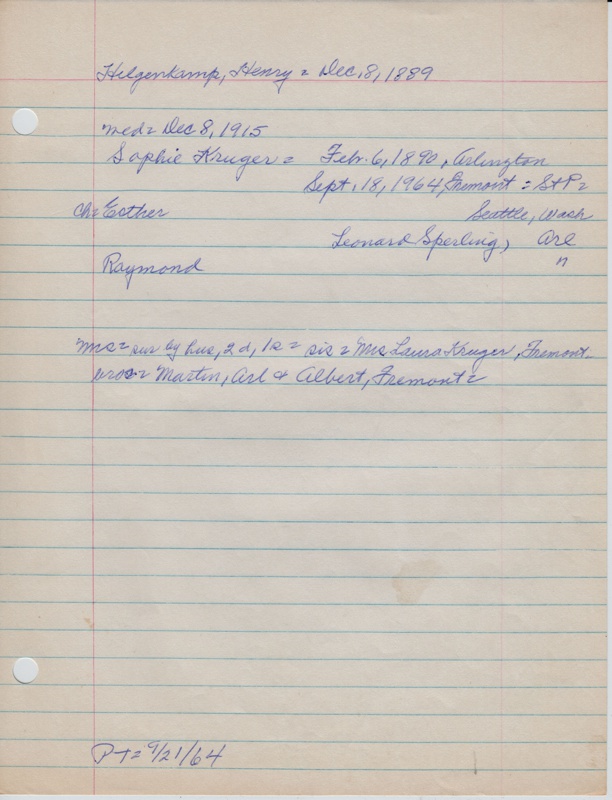 Hilgenkamp, Henry = Dec. 8, 1889
med= Dec 8, 1915
Sophie Kruger = Feb. 6, 1890, Arlington
Sept. 18, 1964, Fremont = St P=
Ch= Esther Seattle, Wash
Leonard Sperling, Arl
Raymond "
Mrs= sur by hus, 2 d, 1s = sis = Mrs Laura Kruger, Fremont-
bros= Martin, Arl & Albert, Fremont=
P-t= 9/21/64